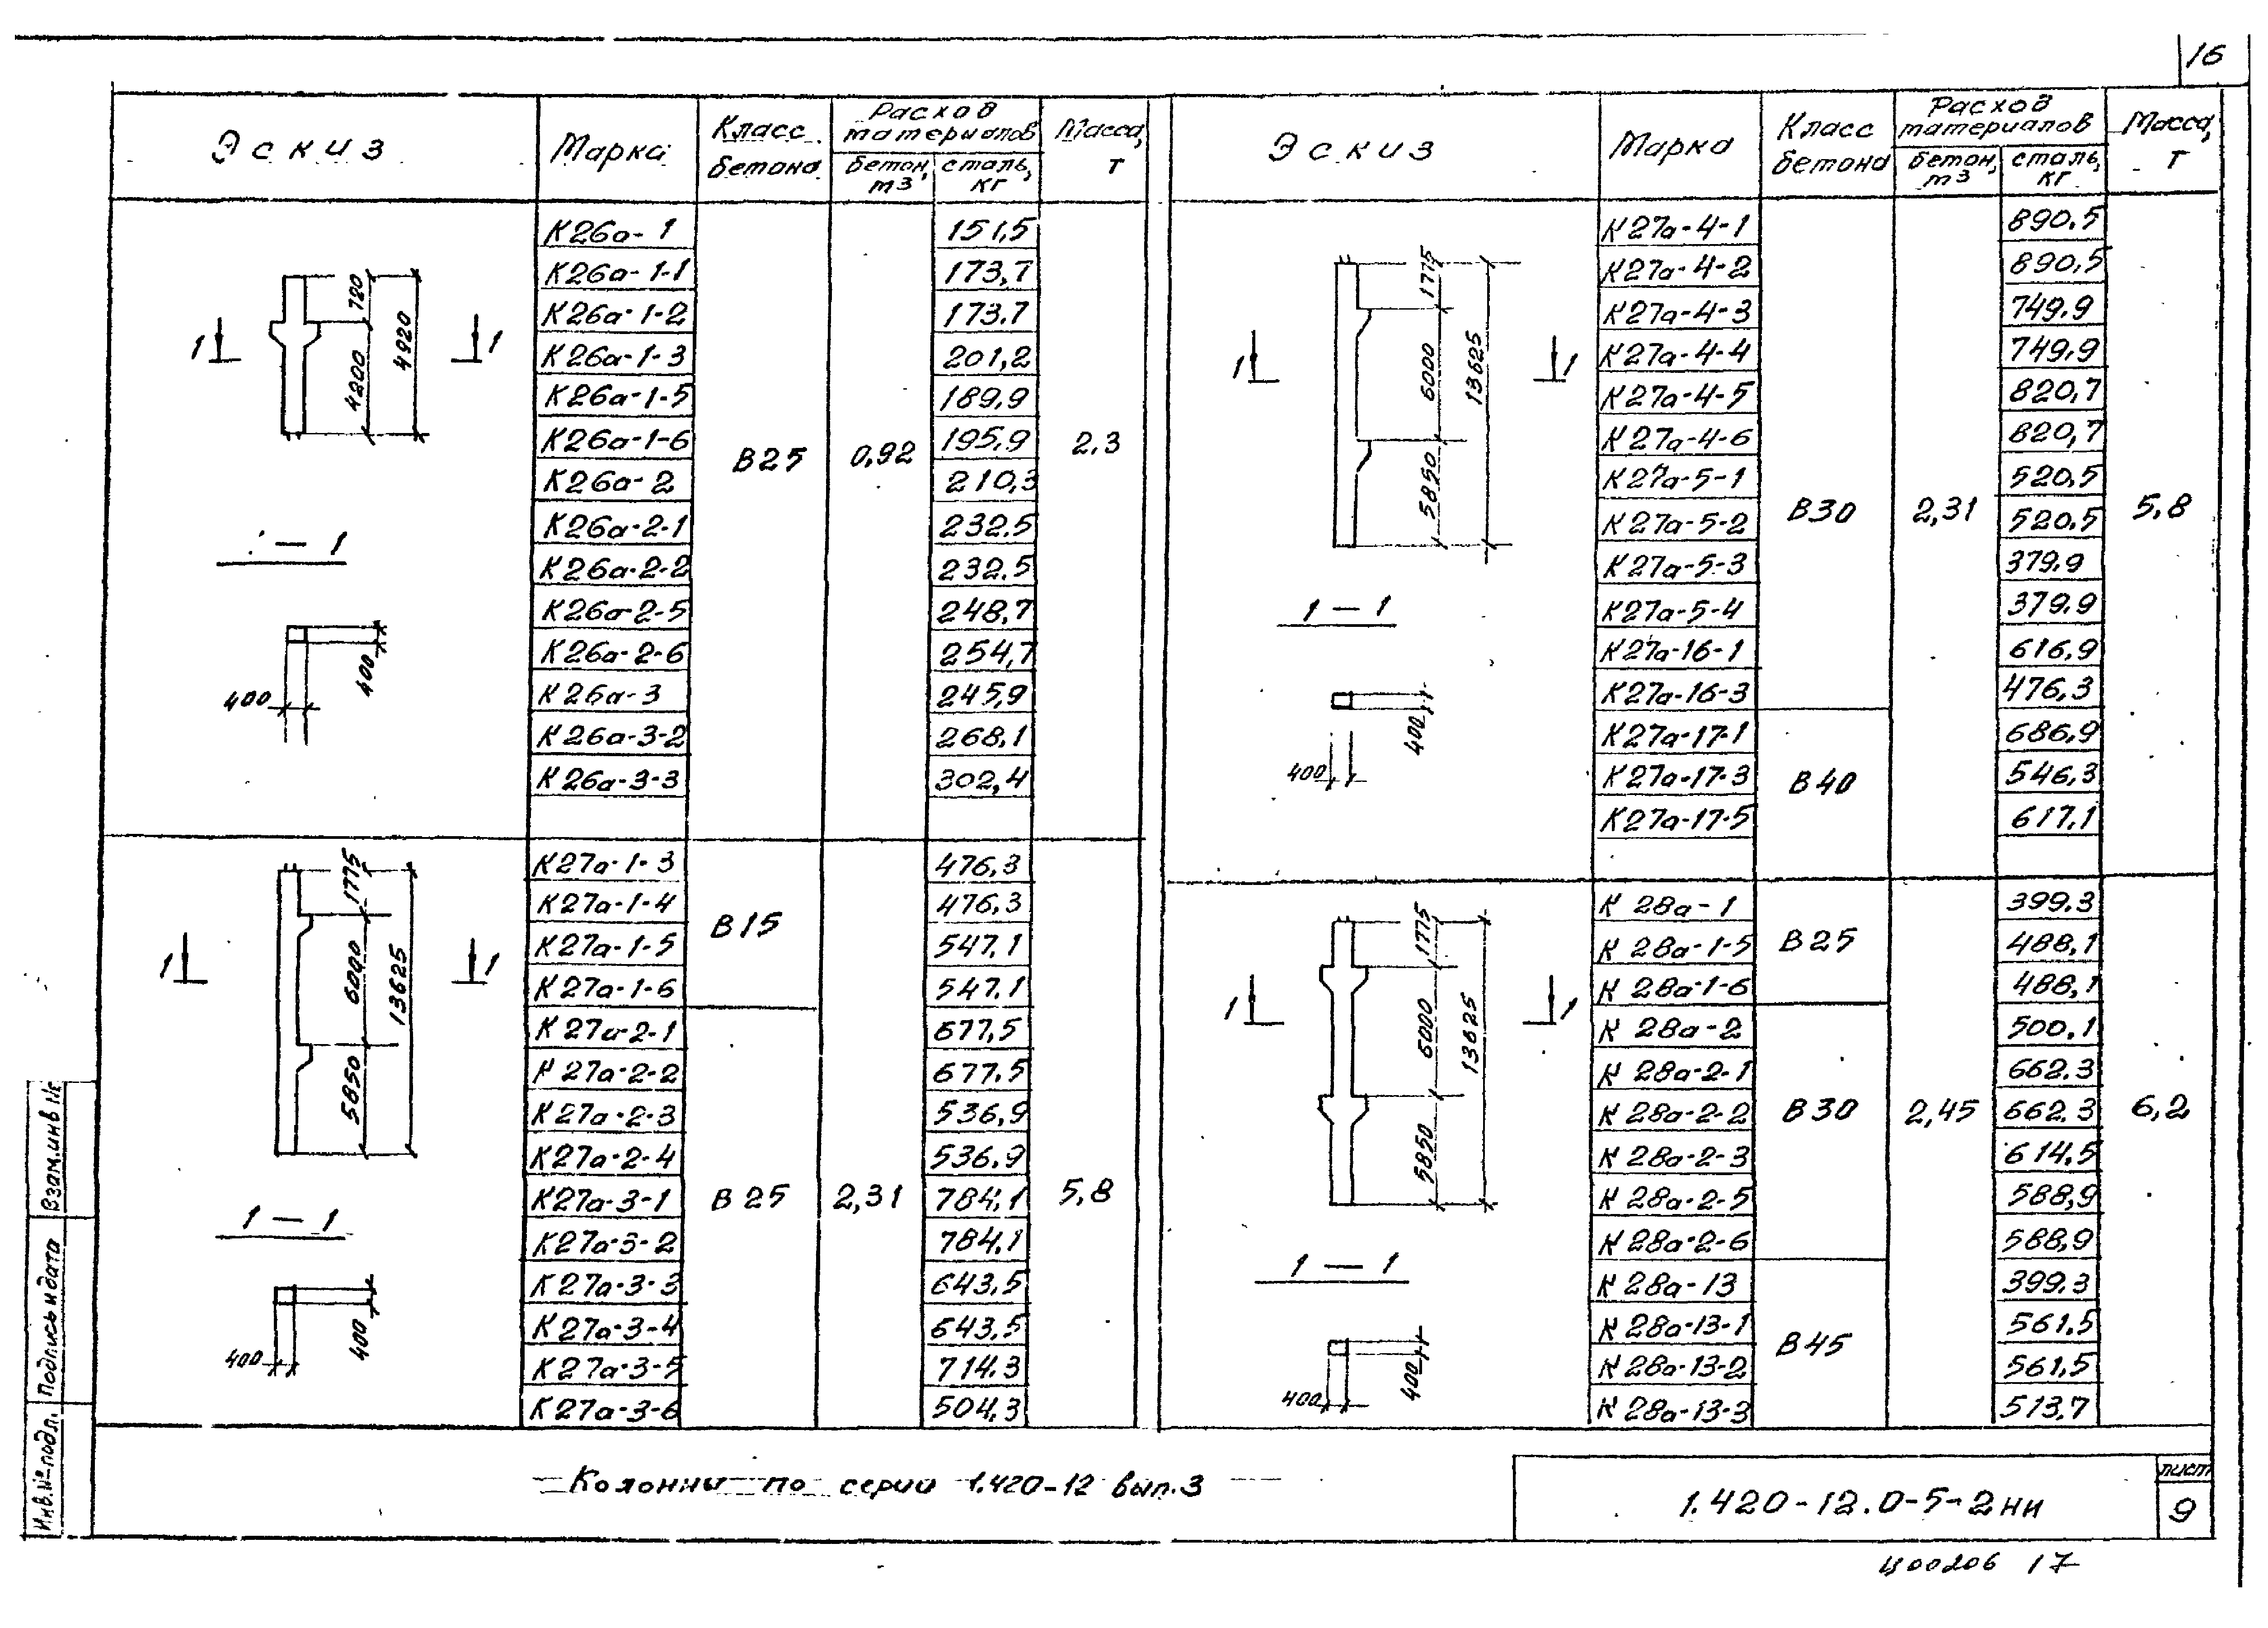 16
Эскиз Марка Класс бетона Расход материалов бетон, m3 сталь, кг Масса, т
К26а-1 151,5
К26а-1-1 173,7
К26а-1-2 173,7
К26а-1-3 201,2
К26а-1-5 189,9
К26а-1-6 195,9
К26а-2 210,3
К26а-2-1 232,5
К26а-2-2 232,5
К26а-2-5 248,7
К26а-2-6 254,7
К26а-3 245,9
К26а-3-2 268,1
К26а-3-3 302,4
В25 0,92 2,3
720
4200
4920
1 1
1 — 1
400
400
К27а-1-3 476,3
К27а-1-4 476,3
К27а-1-5 547,1
К27а-1-6 547,1
В15
К27а-2-1 677,5
К27а-2-2 677,5
К27а-2-3 536,9
К27а-2-4 536,9
К27а-3-1 784,1
К27а-3-2 784,1
К27а-3-3 643,5
К27а-3-4 643,5
К27а-3-5 714,3
К27а-3-6 504,3
В25 2,31 5,8
1775
6000
5850
13625
1 1
1 — 1
400
400
Эскиз Марка Класс бетона Расход материалов бетон, m3 сталь, кг Масса, т
К27а-4-1 890,5
К27а-4-2 890,5
К27а-4-3 749,9
К27а-4-4 749,9
К27а-4-5 820,7
К27а-4-6 820,7
К27а-5-1 520,5
К27а-5-2 520,5
К27а-5-3 379,9
К27а-5-4 379,9
К27а-16-1 616,9
К27а-16-3 476,3
В30 2,31 5,8
К27а-17-1 686,9
К27а-17-3 546,3
К27а-17-5 617,1
В40
1775
6000
5850
13625
1 1
1 — 1
400
400
К 28а-1 399,3
К 28а-1-5 488,1
К 28а-1-6 488,1
В25
К 28а-2 500,1
К 28а-2-1 662,3
К 28а-2-2 662,3
К 28а-2-3 614,5
К 28а-2-5 588,9
К 28а-2-6 588,9
В30 2,45 6,2
К 28а-13 399,3
К 28а-13-1 561,5
К 28а-13-2 561,5
К 28а-13-3 513,7
В45
1775
6000
5850
13625
1 1
1 — 1
400
400
Взам.инв №
Подпись и дата
Инв.№ подл.
Колонны по серии 1.420-12 вып.3
1.420-12.0-5-2НИ
лист
9
Ц00206 17